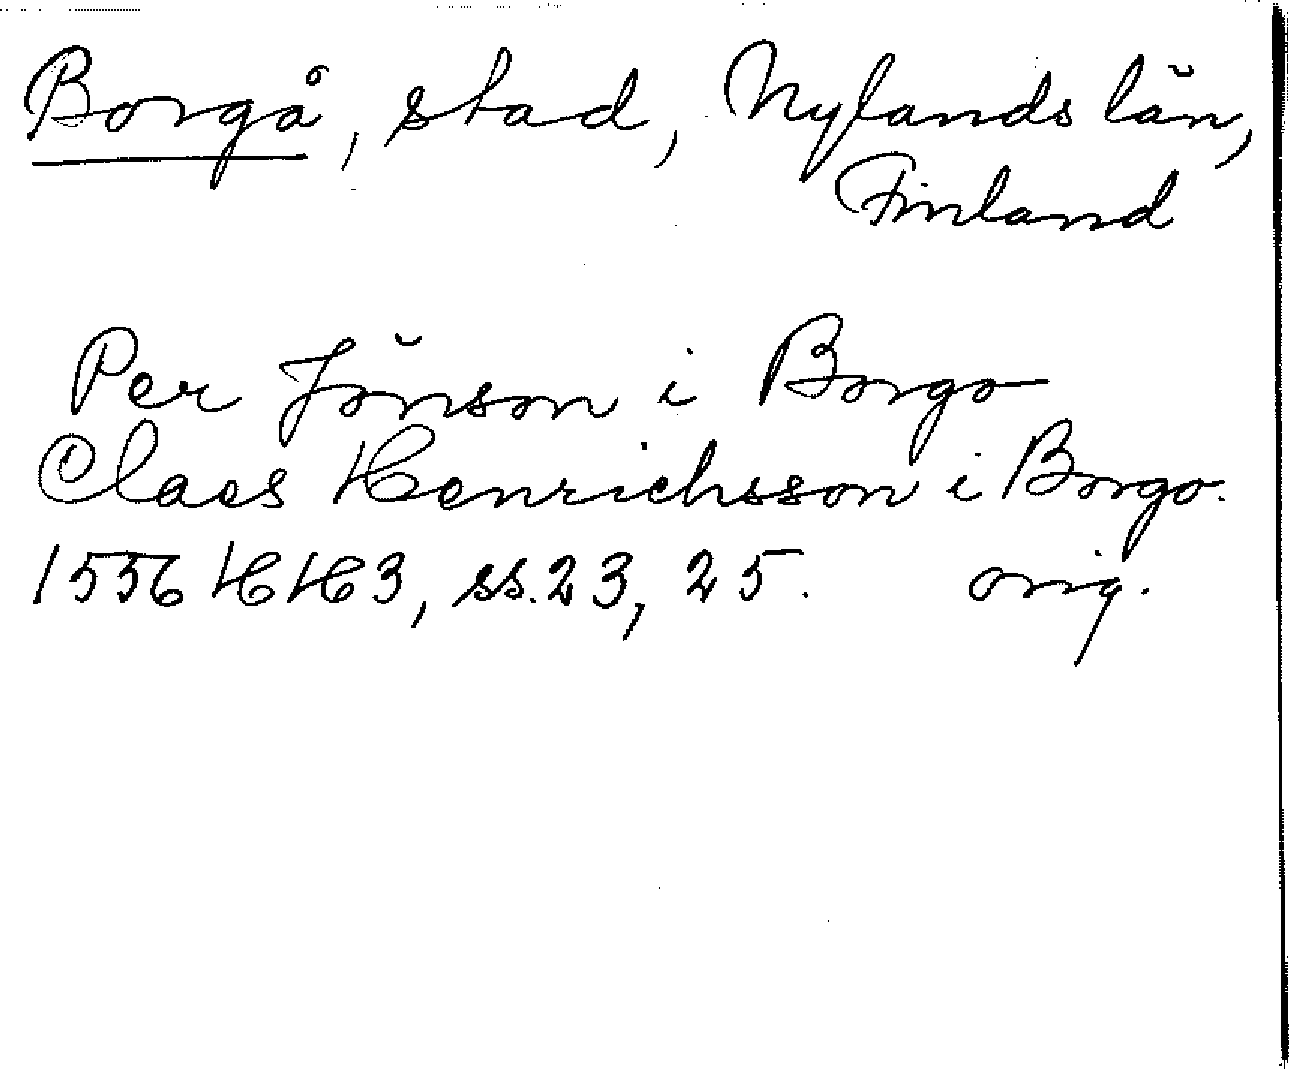 Borgå, stad, Nylands län,
Finland
Per Jönson i Borgo
Claes Henrichsson i Borgo.
1556 HH3, ss. 23, 25. orig.